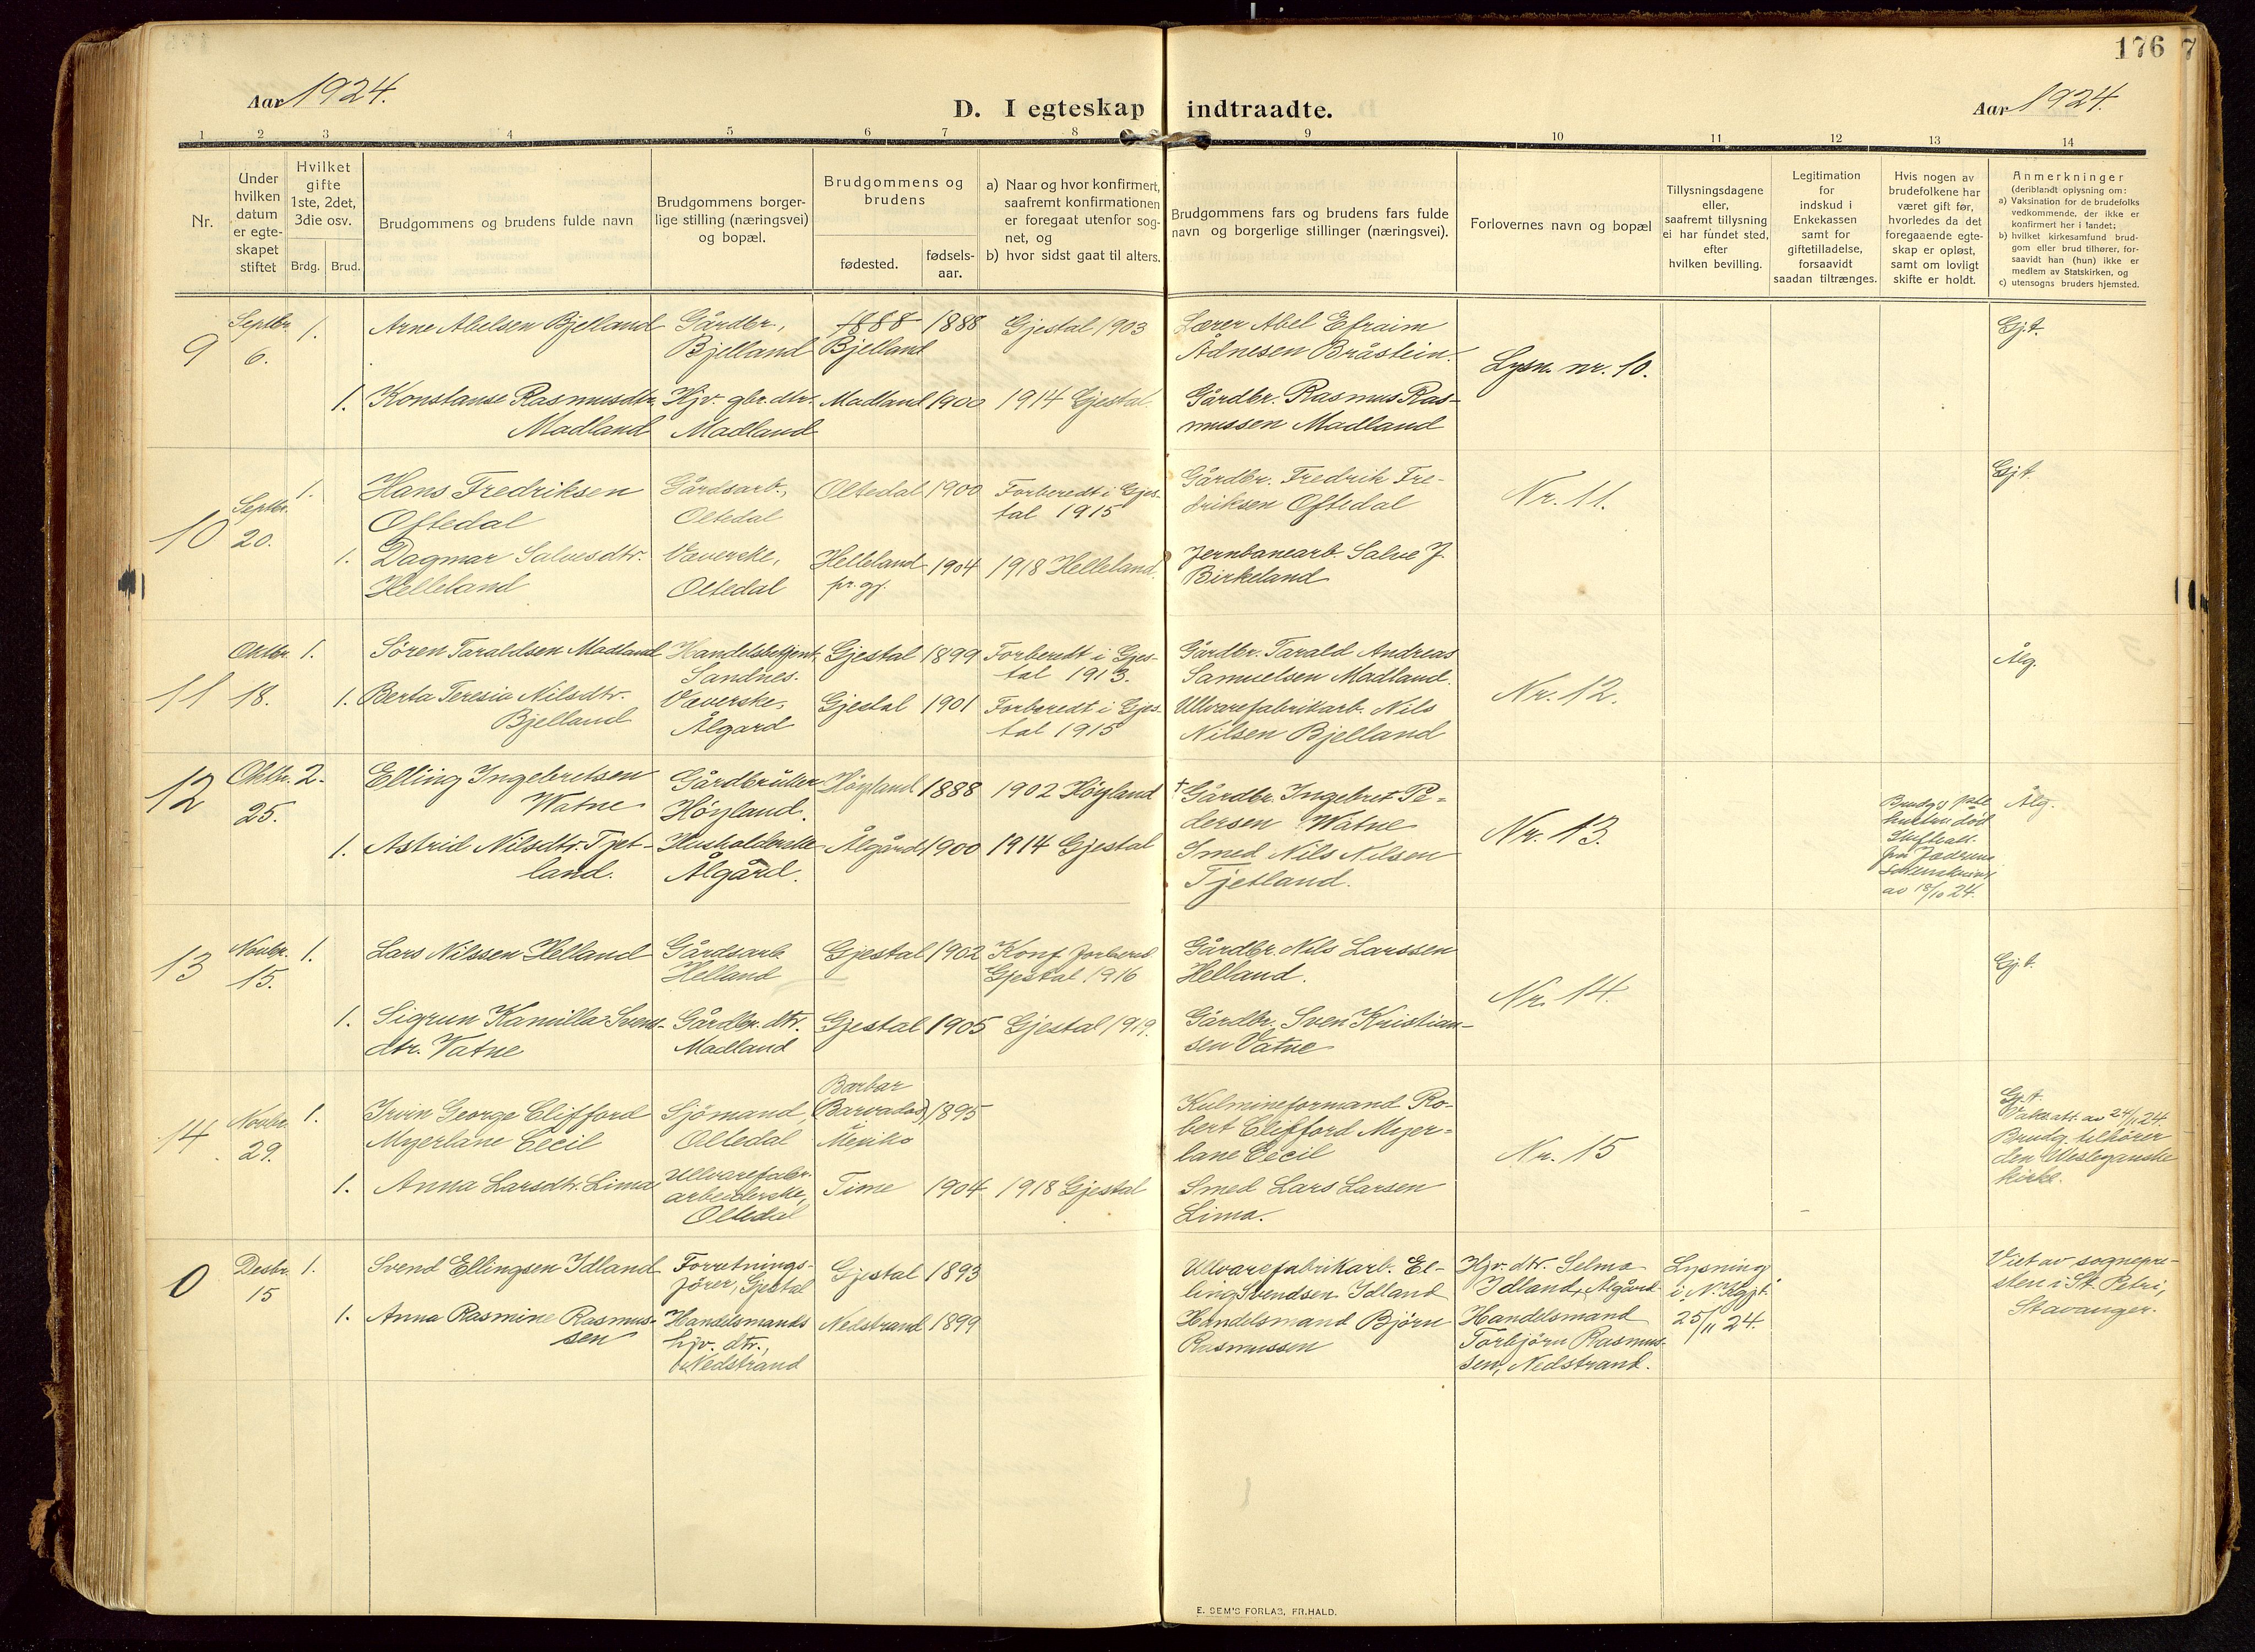 176 7
Aar 1924.
D. I egteskap indtraadte.
Aar 1924.
1 2 3 4 5 6 7 8 9 10 11 12 13 14
Nr.
Under
hvilken
datum
er egte-
skapet
stiftet
Hvilket
gifte
1ste, 2det,
3die osv.
Brdg. Brud.
Brudgommens og brudens fulde navn
Brudgommens borger-
lige stilling (næringsvei)
og bopæl.
Brudgommens og
brudens
fødested.
fødsels-
aar.
a) Naar og hvor konfirmert,
saafremt konfirmationen
er foregaat utenfor sog-
net, og
b) hvor sidst gaat til alters.
Brudgommens fars og brudens fars fulde
navn og borgerlige stillinger (næringsvei).
Forlovernes navn og bopæl
Tillysningsdagene
eller,
saafremt tillysning
ei har fundet sted,
efter
hvilken bevilling.
Legitimation
for
indskud i
Enkekassen
samt for
giftetilladelse,
forsaavidt
saadan tiltrænges.
Hvis nogen av
brudefolkene har
været gift før,
hvorledes da det
foregaaende egte-
skap er opløst,
samt om lovligt
skifte er holdt.
Anmerkninger
(deriblandt oplysning om:
a) Vaksination for de brudefolks
vedkommende, der ikke er
konfirmert her i landet;
b) hvilket kirkesamfund brud-
gom eller brud tilhører, for-
saavidt han (hun) ikke er
medlem av Statskirken, og
c) utensogns bruders hjemsted.
9
Septbr.
6.
1.
Arne Abelsen Bjelland
Gårdbr.,
Bjelland
1888
Bjelland
1888
Gjestal 1903
Lærer Abel Efraim
Ådnesen Bråstein.
Lysn. nr. 10.
Gjt.
1.
Konstanse Rasmusdtr.
Madland
Hjv. gbr. dtr.
Madland
Madland
1900
1914 Gjestal.
Gårdbr. Rasmus Ras-
mussen Madland
10
Septbr.
20.
1.
Hans Fredriksen
Oftedal
Gårdsarb.,
Oltedal
Oltedal
1900
Forberedt i Gjes-
tal 1915
Gårdbr. Fredrik Fre-
driksen Oftedal
Nr. 11.
Gjt
1.
Dagmar Salvesdtr.
Helleland
Væverske,
Oltedal
Helleland
pr. gj.
1904
1918 Helleland.
Jernbanearb. Salve J.
Birkeland
11
Oktbr.
18.
1.
Søren Taraldsen Madland
Handelsbetjent,
Sandnes.
Gjestal
1899
Forberedt i Gjes-
tal 1913.
Gårdbr. Tarald Andreas
Samuelsen Madland.
Nr. 12.
Ålg.
1.
Berta Teresia Nilsdtr.
Bjelland
Væverske,
Ålgård
Gjestal
1901
Forberedt i Gjes-
tal 1915
Ullvarefabrikarb. Nils
Nilsen Bjelland
12
Oktbr.
25.
2.
Elling Ingebretsen
Watne
Gårdbruker
Höyland.
Höyland
1888
1902 Höyland
† Gårdbr. Ingebret Pe-
dersen Watne
Nr. 13.
død
av 18/10 24.
Ålg.
1.
Astrid Nilsdtr. Tjet-
land.
Husholderske
Ålgård.
Ålgård
1900
1914 Gjestal
Smed Nils Nilsen
Tjetland.
13
Novbr.
15.
1.
Lars Nilssen Helland
Gårdsarb.
Helland
Gjestal
1902
Konf. forbered.
Gjestal 1916
Gårdbr. Nils Larssen
Helland.
Nr. 14.
Gj.t.
1.
Sigrun Kamilla Svens-
dtr. Vatne
Gårdbr. dtr.
Madland
Gjestal
1905
Gjestal 1919.
Gårdbr. Sven Kristian-
sen Vatne
14
Novbr.
29.
1.
Irvin George Clifford
Myerlane Cecil
Sjömand,
Oltedal
Barbar
(Barvados)
Mexiko
1895
Kulmineformand Ro-
bert Clifford Myer-
lane Cecil
Nr. 15
Gjt.
Vaksatt. av 24/11 24.
Brudg. tilhører
den Wesleyanske
kirke.
1.
Anna Larsdtr. Lima
Ullvarefabr.
arbeiderske,
Oltedal
Time
1904
1918 Gjestal
Smed Lars Larsen
Lima.
0
Desbr.
15
1.
Svend Ellingsen Idland
Forretnings-
fører, Gjestal
Gjestal
1893
Ullvarefabrikarb. El-
ling Svendsen Idland
Hjv. dtr. Selma
Idland, Ålgård.
Lysning
i N. Kgjt.
25/11 24.
Viet av sognepre-
sten i St. Petri,
Stavanger.
1.
Anna Rasmine Rasmus-
sen
Handelsmands
hjv. dtr.,
Nedstrand
Nedstrand
1899
Handelsmand Björn
Rasmussen
Handelsmand
Torbjörn Rasmus-
sen, Nedstrand.
E. SEM'S FORLAG, FR.HALD.